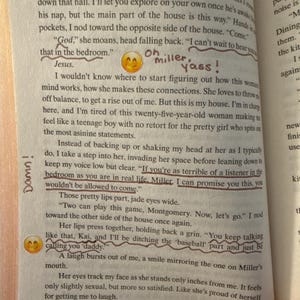 down that hall. I'll let you explore on your own once he's awake
his nap, but the main part of the house is this way." Hands
pockets, I nod toward the opposite side of the house. "Come."
"God," she moans, head falling back. "I can't wait to hear you
that in the bedroom."
Oh
miller,
yass!
Jesus.
I wouldn't know where to start figuring out how this woman's
mind works, how she makes these connections. She loves to throw
off balance, to get a rise out of me. But this is my house. I'm in charge
here, and I'm tired of this twenty-five-year-old woman making me
feel like a teenage boy with no retort for the pretty girl who spits out
the most asinine statements.
Instead of backing up or shaking my head at her as I typically
do, I take a step into her, invading her space before leaning down to
keep my voice low but clear. "If you're as terrible of a listener in the
bedroom as you are in real life, Miller, I can promise you this, you
wouldn't be allowed to come."
Damn!
Those pretty lips part, jade eyes wide.
"Two can play this game, Montgomery. Now, let's go." I nod
toward the other side of the house once again.
Her lips press together, holding back a grin. "You keep talking
like that, Kai, and I'll be ditching the 'baseball' part and just be
calling you 'daddy.'"
A laugh bursts out of me, a smile mirroring the one on Miller's
mouth.
Her eyes track my face as she stands only inches from me. It feels
only slightly sexual, but more so satisfied. Like she's proud of herself
for getting me to laugh.
noise is
"M
Dining
them.
I
again
new
fini
use
kit
th